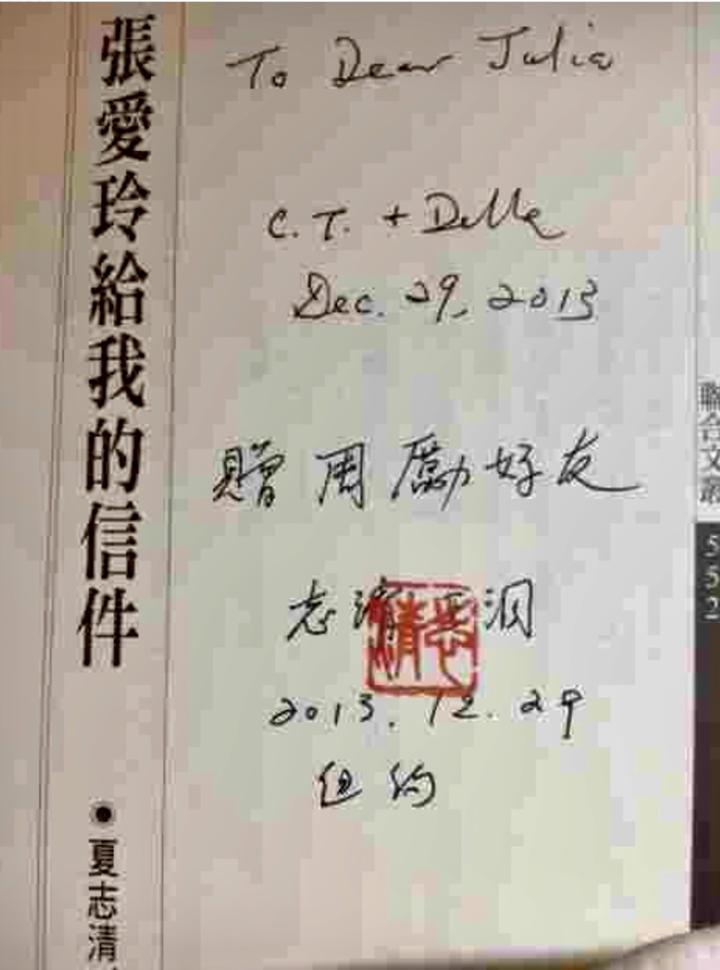 張愛玲給我的信件
● 夏志清
To Dear Julia
C.T. + Della
Dec. 29, 2013
贈周勵好友
志清王洞
志清
2013.12.29
纽约
聯合文叢
552